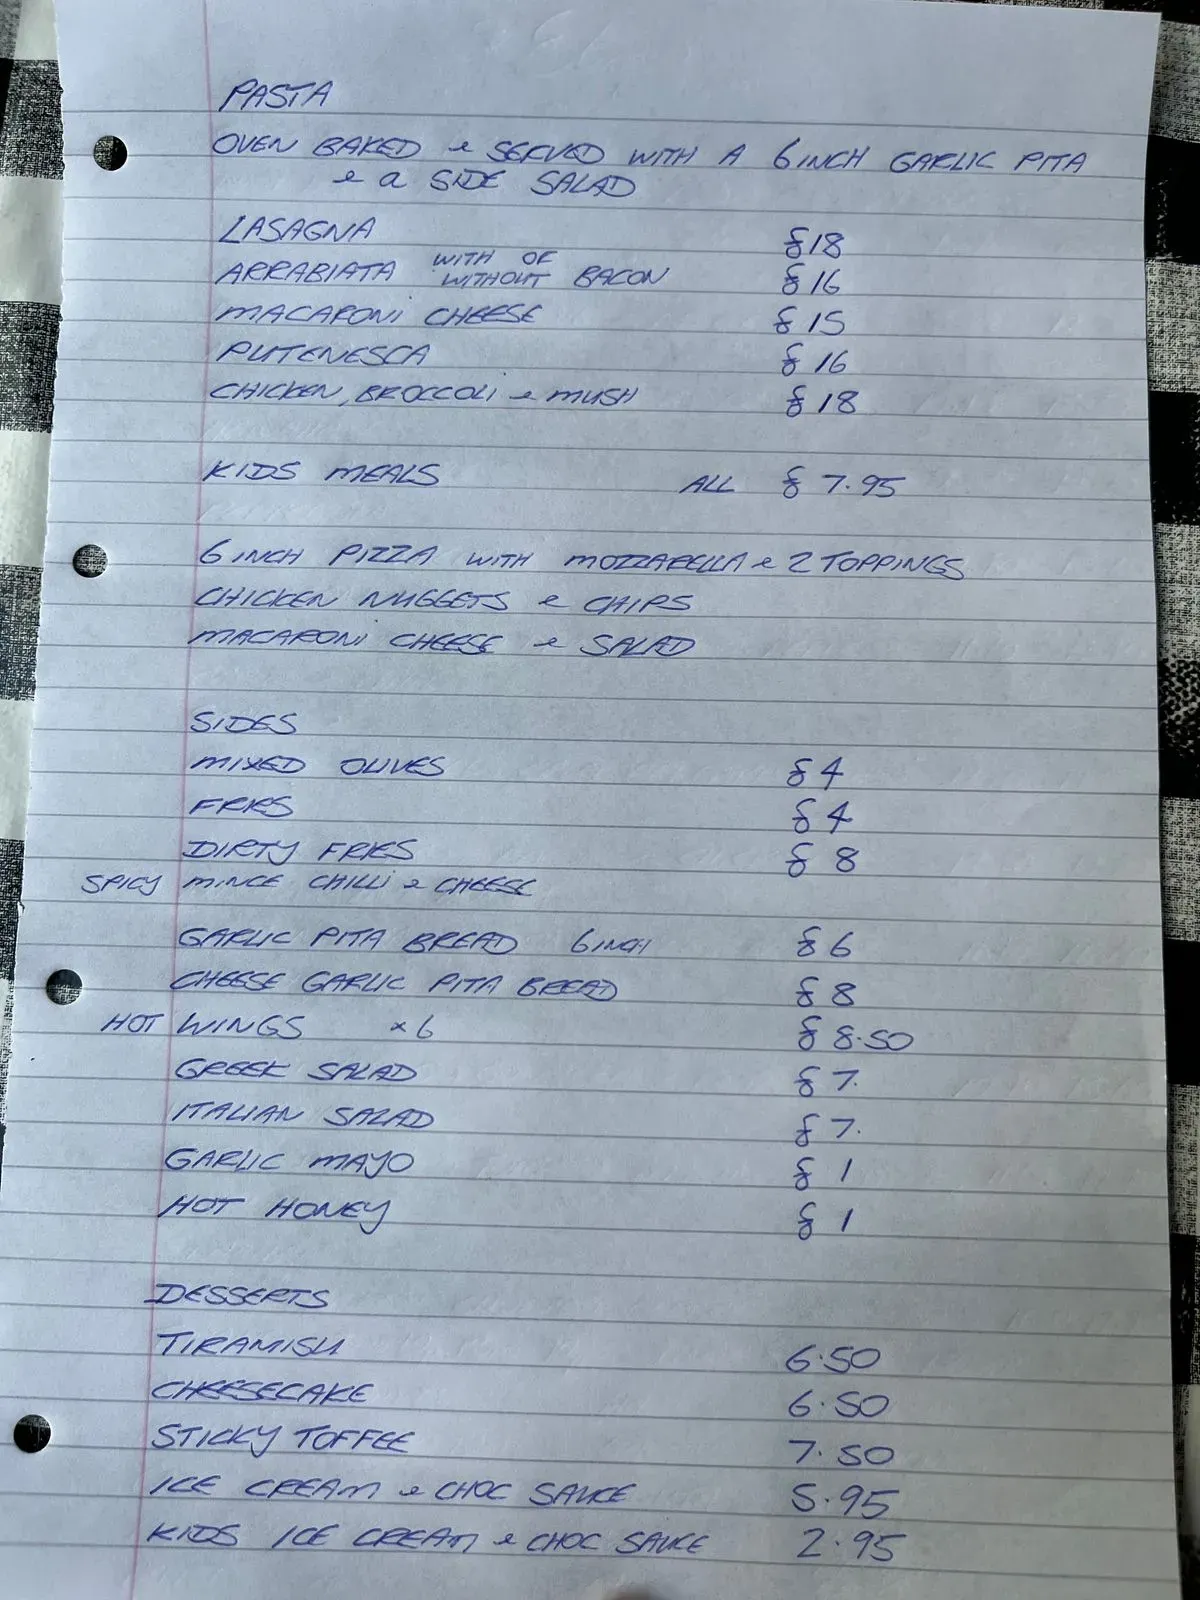 PASTA
OVEN BAKED & SERVED WITH A 6 INCH GARLIC PITA
& a SIDE SALAD
LASAGNA £18
ARRABIATA WITH OR WITHOUT BACON £16
MACARONI CHEESE £15
PUTENESCA £16
CHICKEN, BROCCOLI & MUSH £18
KIDS MEALS ALL £7.95
6 INCH PIZZA WITH MOZZARELLA & 2 TOPPINGS
CHICKEN NUGGETS & CHIPS
MACARONI CHEESE & SALAD
SIDES
MIXED OLIVES £4
FRIES £4
DIRTY FRIES £8
SPICY MINCE CHILLI & CHEESE
GARLIC PITA BREAD 6 INCH £6
CHEESE GARLIC PITA BREAD £8
HOT WINGS x6 £8.50
GREEK SALAD £7.
ITALIAN SALAD £7.
GARLIC MAYO £1
HOT HONEY £1
DESSERTS
TIRAMISU 6.50
CHEESECAKE 6.50
STICKY TOFFEE 7.50
ICE CREAM & CHOC SAUCE 5.95
KIDS ICE CREAM & CHOC SAUCE 2.95